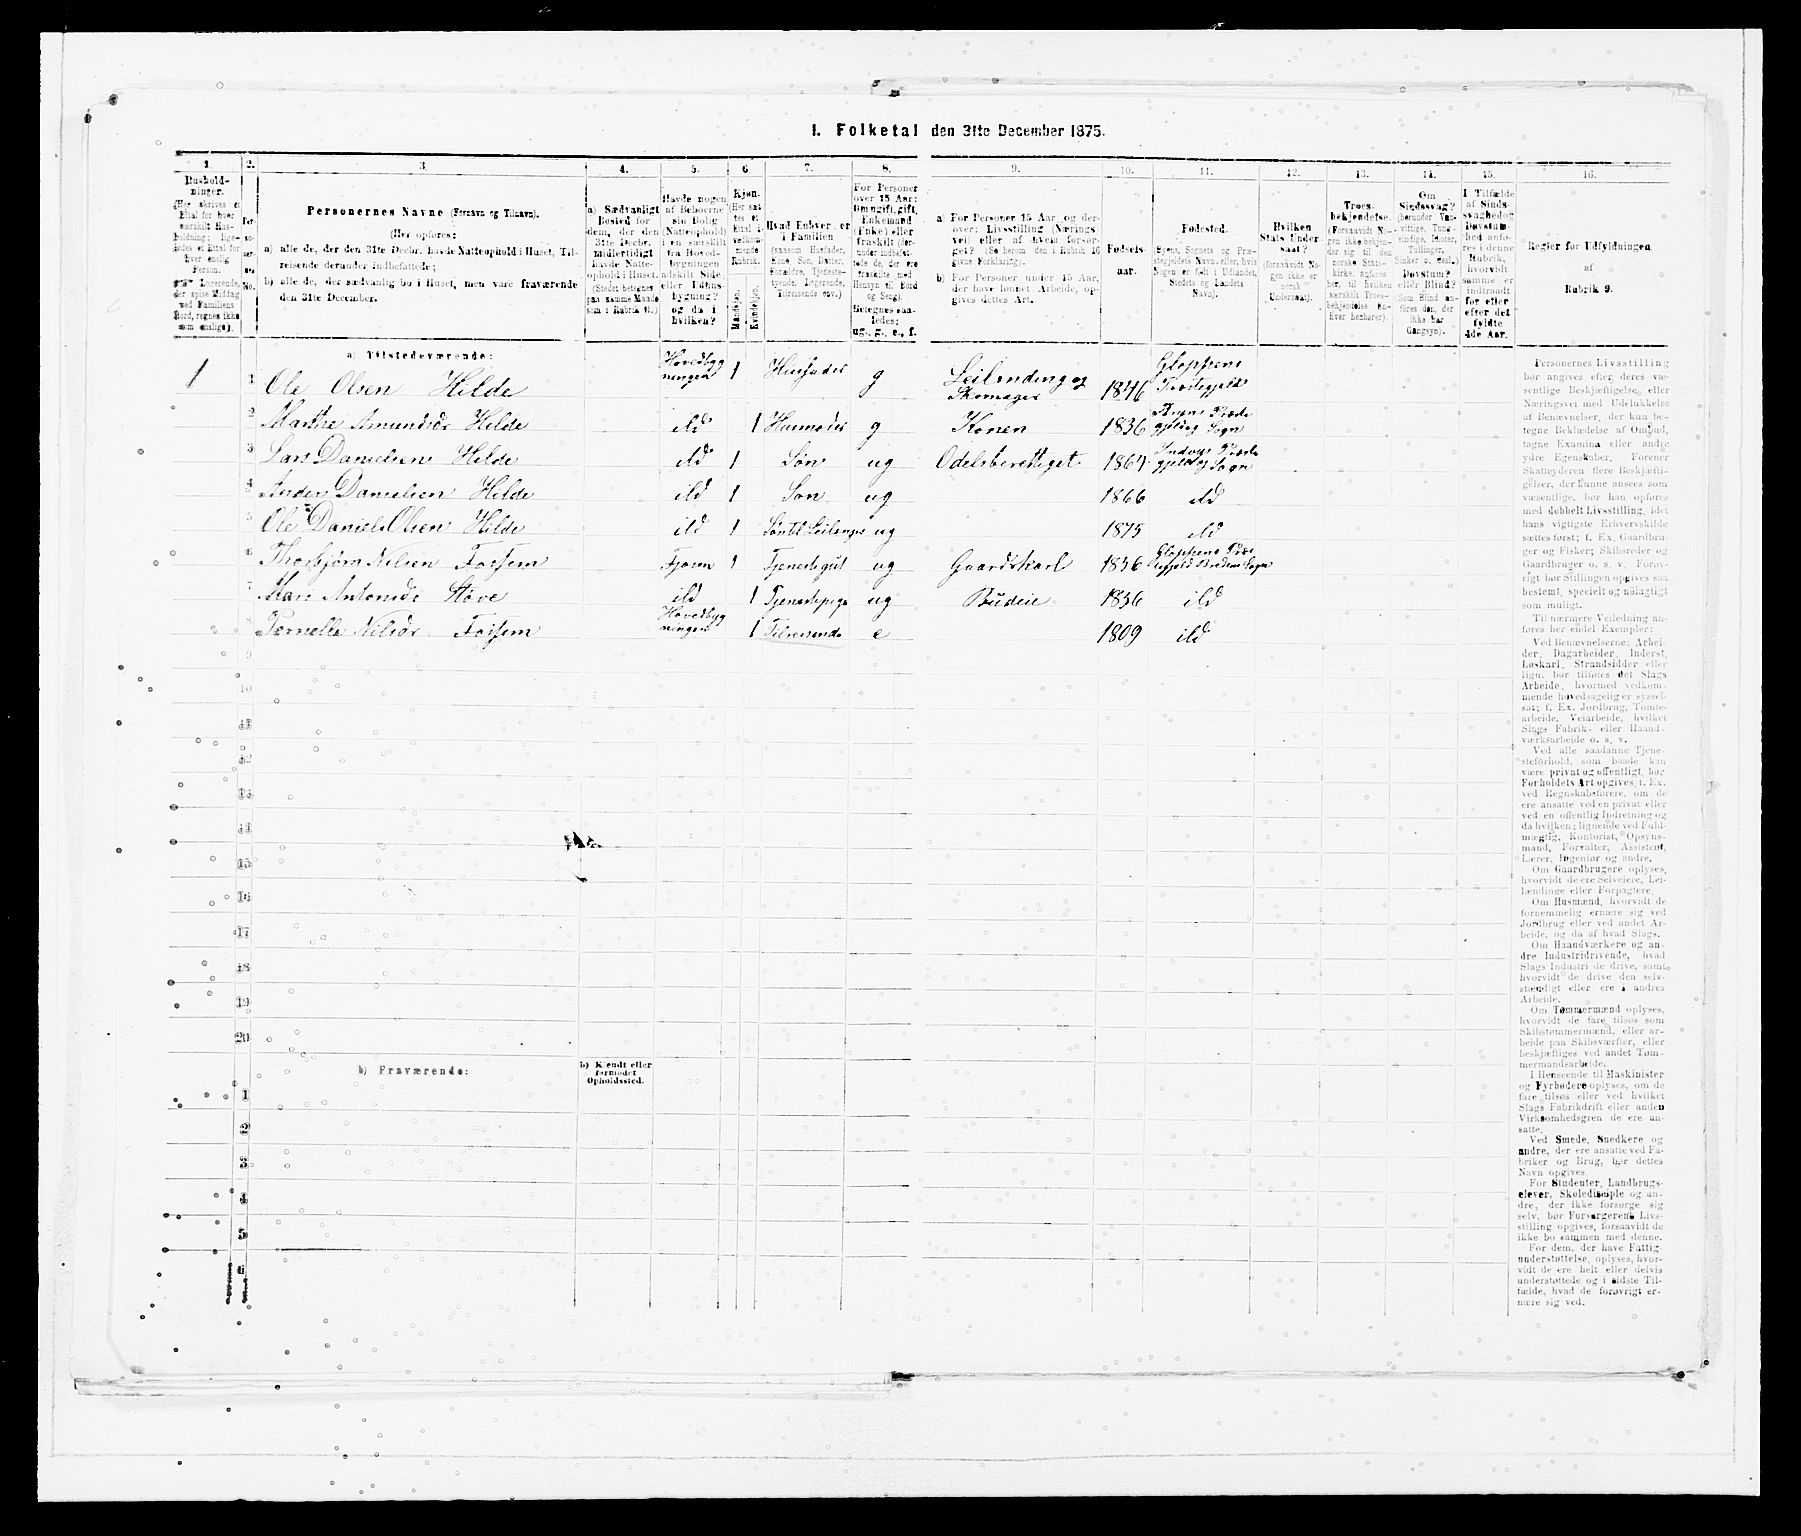 1. Folketal den 31te December 1875.
1. 2. 3. 4. 5. 6 7. 8. 9. 10. 11. 12. 13. 14. 15. 16.
Personernes Navne (Fornavn og Tilnavn).
(Her opføres:
a) alle de, der den 31te Decbr. havde Natteophold i Huset, Til-
reisende derunder indbefattede;
b) alle de, der sædvanlig bo i Huset, men vare fraværende
den 31te December.
a) Sædvanligt
Bosted for
dem, der den
31te Decbr.
midlertidigt
havde Natte-
ophold i Huset.
Havde nogen
af Beboerne
sin Bolig
(Natteophold)
i en særskilt
fra Hoved-
bygningen
adskilt Side-
eller Udhus-
bygning?
og da i
hvilken?
Kjøn.
Mandkjøn.
Kvindekjøn.
Hvad Enhver er
i Familien
For Personer
over 15 Aar:
Om ugift, gift,
Enkemand
(Enke) eller
fraskilt
Betegnes saa-
ledes:
ug., g., e., f.
a) For Personer 15 Aar og der-
over: Livsstilling (Nærings-
vei) eller af hvem forsør-
get? (Se herom den i Rubrik 16
givne Forklaring).
b) For Personer under 15 Aar,
der have lønnet Arbeide, op-
gives dettes Art.
Fødsels-
aar.
Fødested.
Hvilken
Stats Under-
saat?
(forsaavidt No-
gen ikke er
norsk
Undersaat).
Troes-
bekjendelse.
Om
Sindssvag?
Døvstum?
eller Blind?
I Tilfælde
af Sinds-
svaghed og
Døvstum-
hed anfø-
res i denne
Rubrik,
hvorvidt
samme er
indtraadt
før eller
efter det
fyldte
4de Aar.
Regler for Udfyldningen
af
Rubrik 9.
a) Tilstedeværende:
1 1 Ole Olsen Hilde Hovedbyg-
ningen 1 Huusfader g Leilending og
Skomager 1846 Gloppens
Præstegjeld
2 Marthe Amundsdr Hilde ild 1 Huusmoder g Konen 1836
3 Lars Danielsen Hilde ild 1 Søn ug Odelsberettiget 1864
4 Anders Danielsen Hilde ild 1 Søn ug 1866 ild
5 Ole Daniel Olsen Hilde ild 1 ug 1875 ild
6 Thorbjørn Nilsen Fossem 1 Tjenestegut ug Gaardskarl 1856
7 Mari Antonsdr Støve ild 1 Tjenestepige ug Budeie 1856 ild
8 Pernelle Nilsdr Fossem Hovedbyg-
ningen 1 Tilreisende e 1809 ild
9
10
11
12
13
14
15
16
17
18
19
20
b) Fraværende: b) Kjendt eller
formodet
Opholdssted.
1
2
3
4
5
6
Personernes Livsstilling
bør angives efter deres væ-
sentlige Beskjæftigelse eller
Næringsvei med Udelukkelse
af Benævnelser, der kun be-
tegne Beklædelse af Ombud,
tagne Examina eller andre
ydre Egenskaber. Forener
Skatteyderen flere Beskjæfti-
gelser, der kunne ansees som
væsentlige, bør han opføres
med dobbelt Livsstilling, idet
hans vigtigste Erhvervskilde
sættes først; f. Ex. Gaardbru-
ger og Fisker; Skibsreder og
Gaardbruger o. s. v. Forøv-
rigt bør Stillingen opgives saa
bestemt, specielt og nøiagtigt
som muligt.
Til nærmere Veiledning an-
føres her endel Exempler:
Ved Benævnelserne: Arbei-
der, Dagarbeider, Inderst,
Løskarl, Strandsidder eller
lign. bør tilføies det Slags
Arbeide, hvormed vedkom-
mende hovedsagelig er syssel-
sat; f. Ex. Jordbrug, Tomte-
arbeide, Veiarbeide, hvilket
Slags Fabrik- eller Haand-
værksarbeide o. s. v.
Ved alle saadanne Tjene-
steforhold, som baade kan
være privat og offentligt, bør
Forholdets Art opgives, f. Ex.
ved Regnskabsførere, om de
ere ansatte ved en privat eller
ved en offentlig Indretning og
da hvilken; lignende ved Fuld-
mægtig, Kontorist, Opsyns-
mand, Forvalter, Assistent,
Lærer, Ingeniør og andre.
Om Gaardbrugere oplyses,
hvorvidt de ere Selveiere, Lei-
lændinge eller Forpagtere.
Om Husmænd, hvorvidt de
fornemmelig ernære sig ved
Jordbrug eller ved andet Ar-
beide, og da af hvad Slags.
Om Haandværkere og an-
dre Industridrivende, hvad
Slags Industri de drive, samt
hvorvidt de drive den selv-
stændigt eller ere i andres
Arbeide.
Om Tømmermænd oplyses,
hvorvidt de fare tilsøs som
Skibstømmermænd, eller ar-
beide paa Skibsværfter, eller
beskjæftiges ved andet Tøm-
mermandsarbeide.
I Henseende til Maskinister
og Fyrbødere oplyses, om de
fare tilsøs eller ved hvilket
Slags Fabrikdrift eller anden
Virksomhedsgren de ere an-
satte.
Ved Smede, Snedkere og
andre, der ere ansatte ved Fa-
briker og Brug, bør dettes
Navn opgives.
For Studenter, Landbrugs-
elever, Skoledisciple og an-
dre, der ikke forsørge sig
selv, bør Forsørgerens Livs-
stilling opgives, forsaavidt de
ikke bo sammen med denne.
For dem, der have Fattig-
understøttelse, oplyses, hvor-
vidt de ere helt eller delvis
understøttede og i sidste Til-
fælde, hvad de forøvrigt er-
nære sig ved.